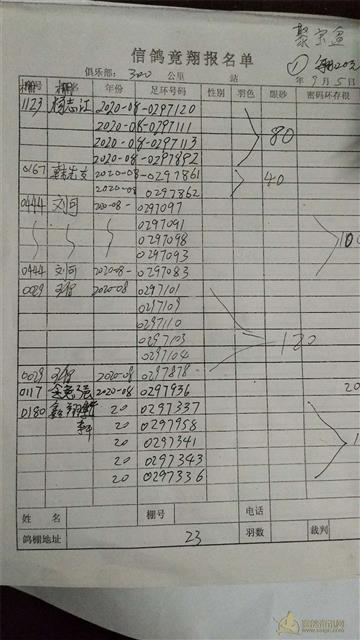 聚宝盆
信鸽竟翔报名单
俱乐部: 300 公里 站 年 9 月 5 日
棚号 棚名 年份 足环号码 性别 羽色 眼砂 密码环存根
1123 杨志江 2020-08-0297120
2020-08-0297111
2020-08-0297113
2020-08-0297892
80
0167 2020-08-0297861
2020-08 0297862
40
0444 刘同 2020-08-0297097
0297091
0297098
0297093
0444 刘同 2020-08-0297083
100
0029 2020-08 0297101
0297109
0297110
0297103
0297104
0029 2020-08 0297878
120
0117 2020-08 0297936 20
0180 20 0297337
20 0297958
20 0297341
20 0297343
20 0297336
姓名 棚号 电话
鸽棚地址 23 羽数 裁判